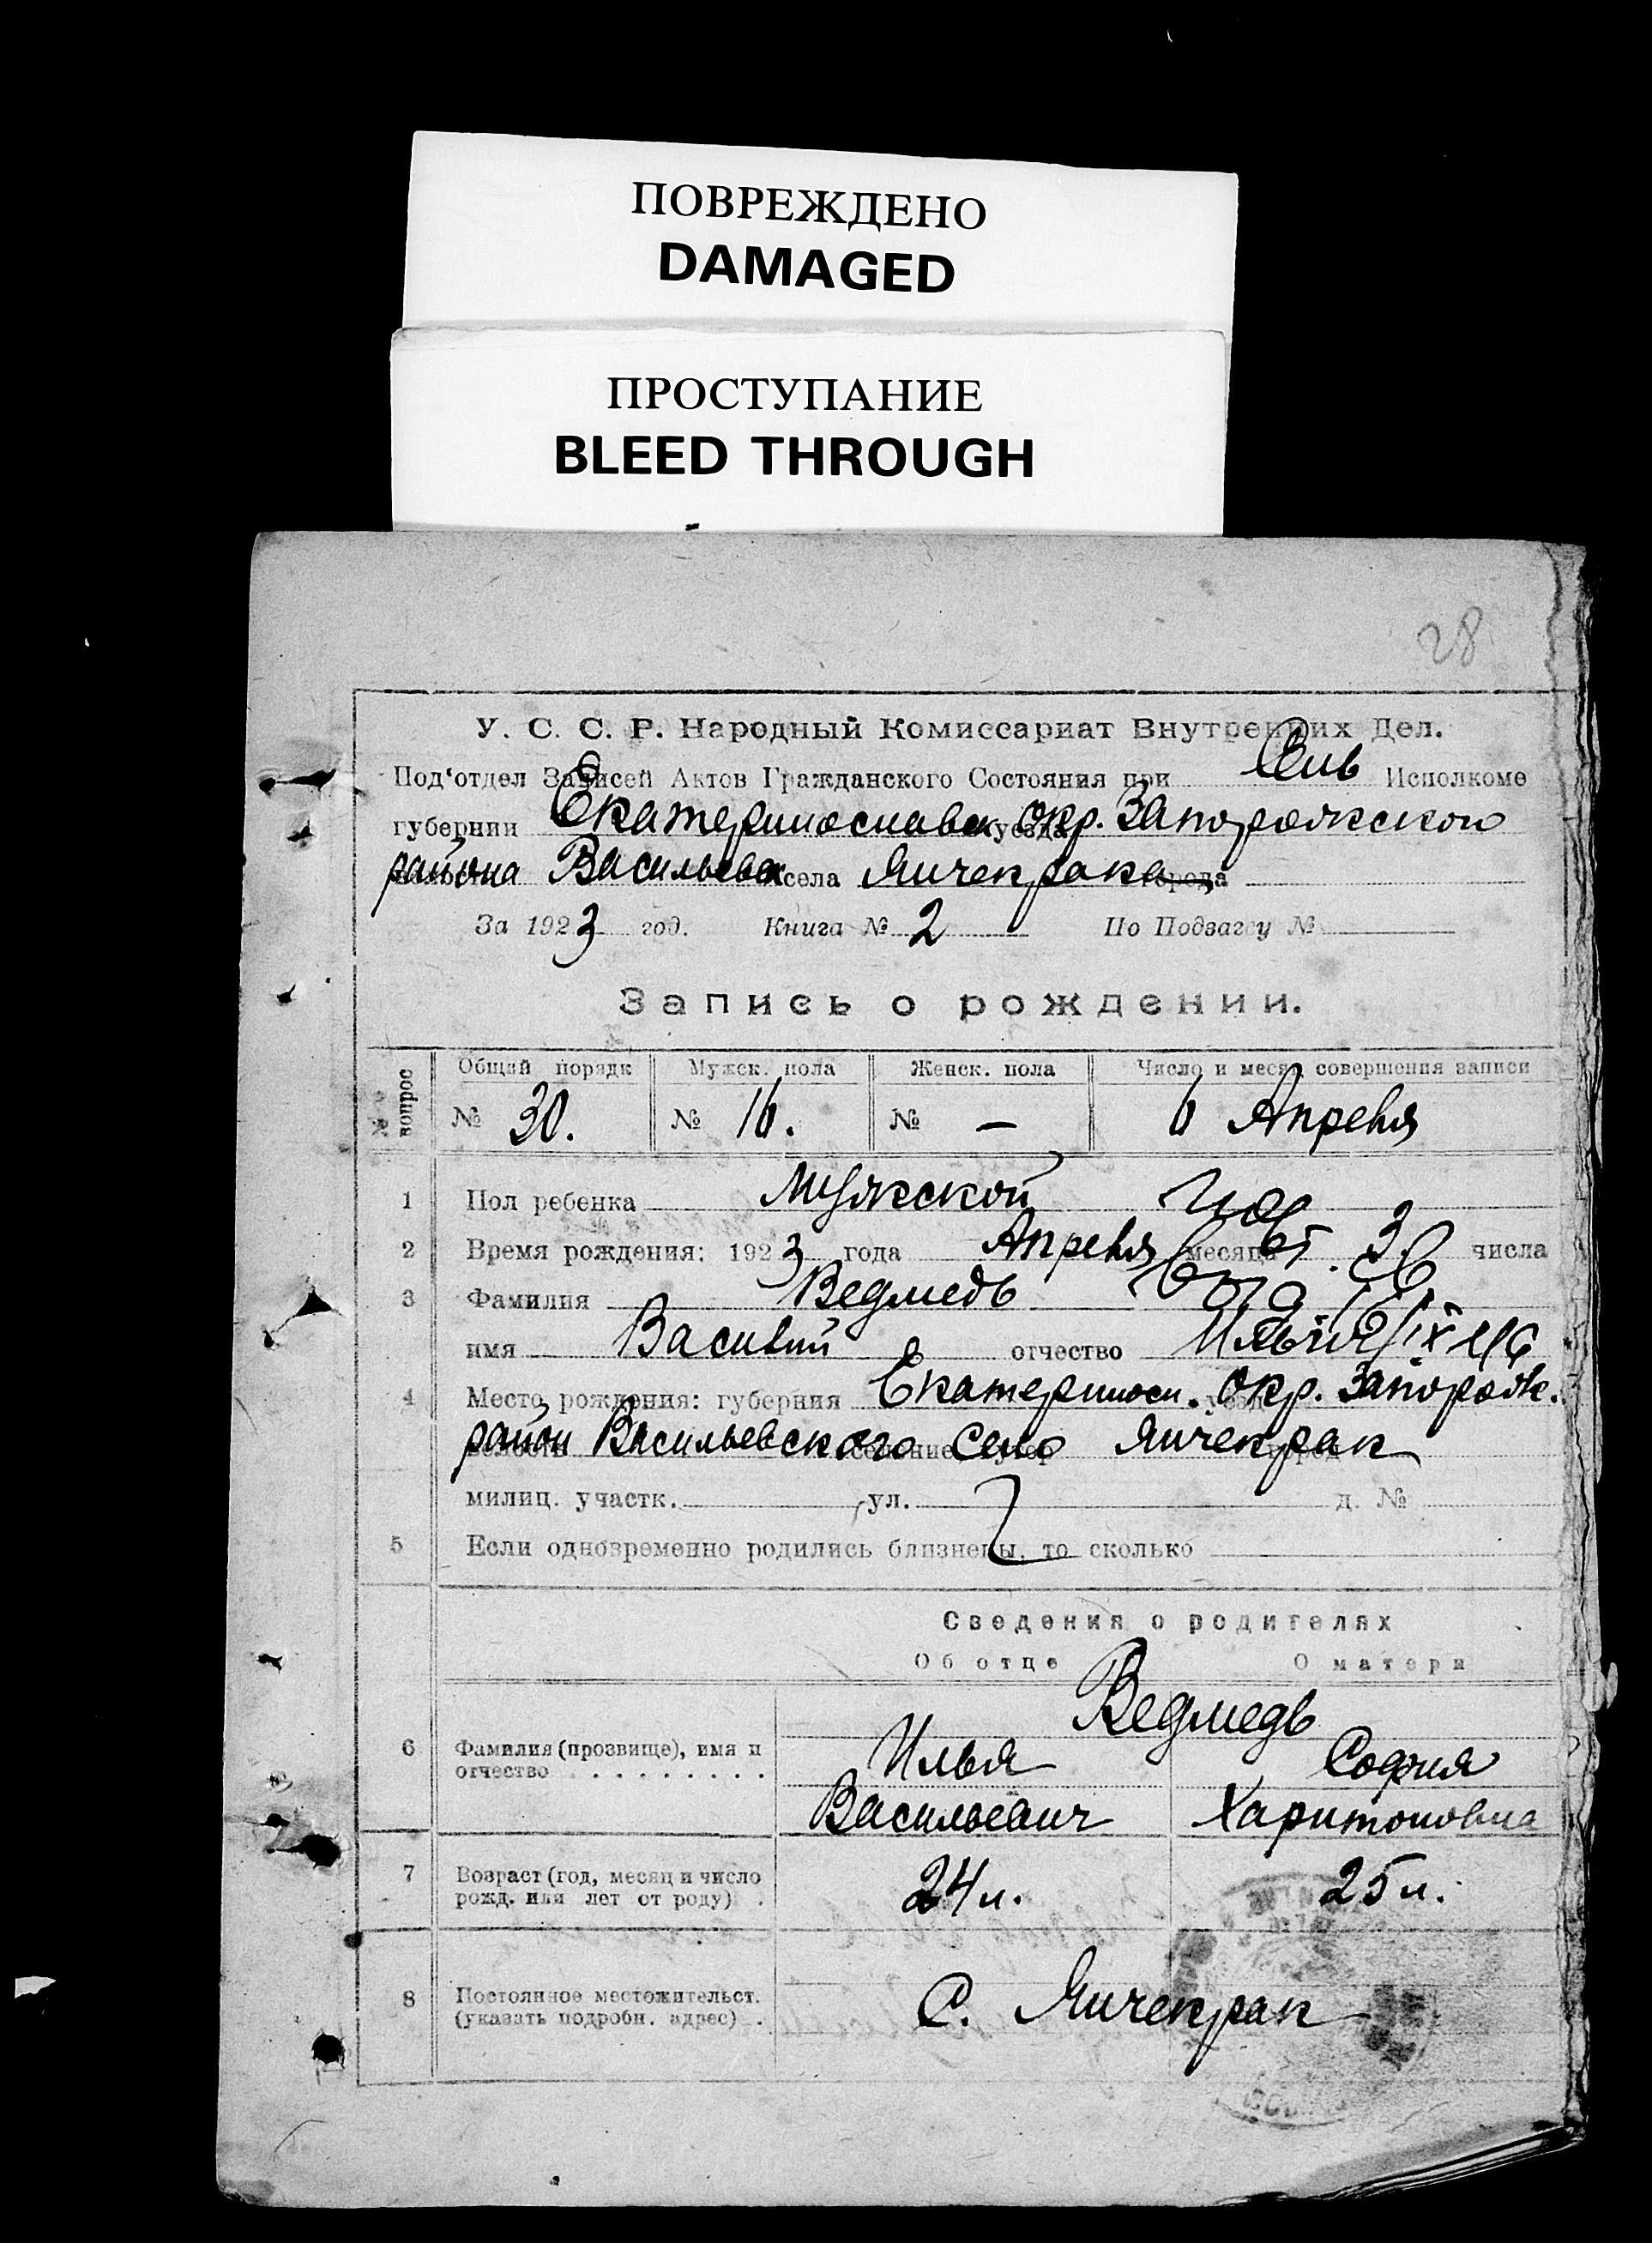 ПОВРЕЖДЕНО
DAMAGED
ПРОСТУПАНИЕ
BLEED THROUGH
28
У. С. С. Р. Народный Комиссариат Внутренних Дел.
Под'отдел Записей Актов Гражданского Состояния при Сель Исполкоме
губернии Екатеринославск уезда окр. Запорожского
района Васильевск села Янчекрака города
За 1923 год. Книга № 2 По Подзагсу №
Запись о рождении.
№ вопрос Общий порядк Мужск. пола Женск. пола Число и месяц совершения записи
№ 30. № 16. № — 6 Апреля
1 Пол ребенка Мужской
2 Время рождения: 1923 года Апреля месяца 3 числа
3 Фамилия Ведмедь
имя Василий отчество Ильич
4 Место рождения: губерния Екатериносл. окр. Запорож.
район Васильевского селение хутор Село Янчекрак город
милиц. участк. ул. д. №
5 Если одновременно родились близнецы, то сколько
Сведения о родителях
Об отце О матери
Ведмедь
6 Фамилия (прозвище), имя и отчество Илья София
Васильевич Харитоновна
7 Возраст (год, месяц и число рожд. или лет от роду) 24 л. 25 л.
8 Постоянное местожительст. (указать подробн. адрес) С. Янчекрак